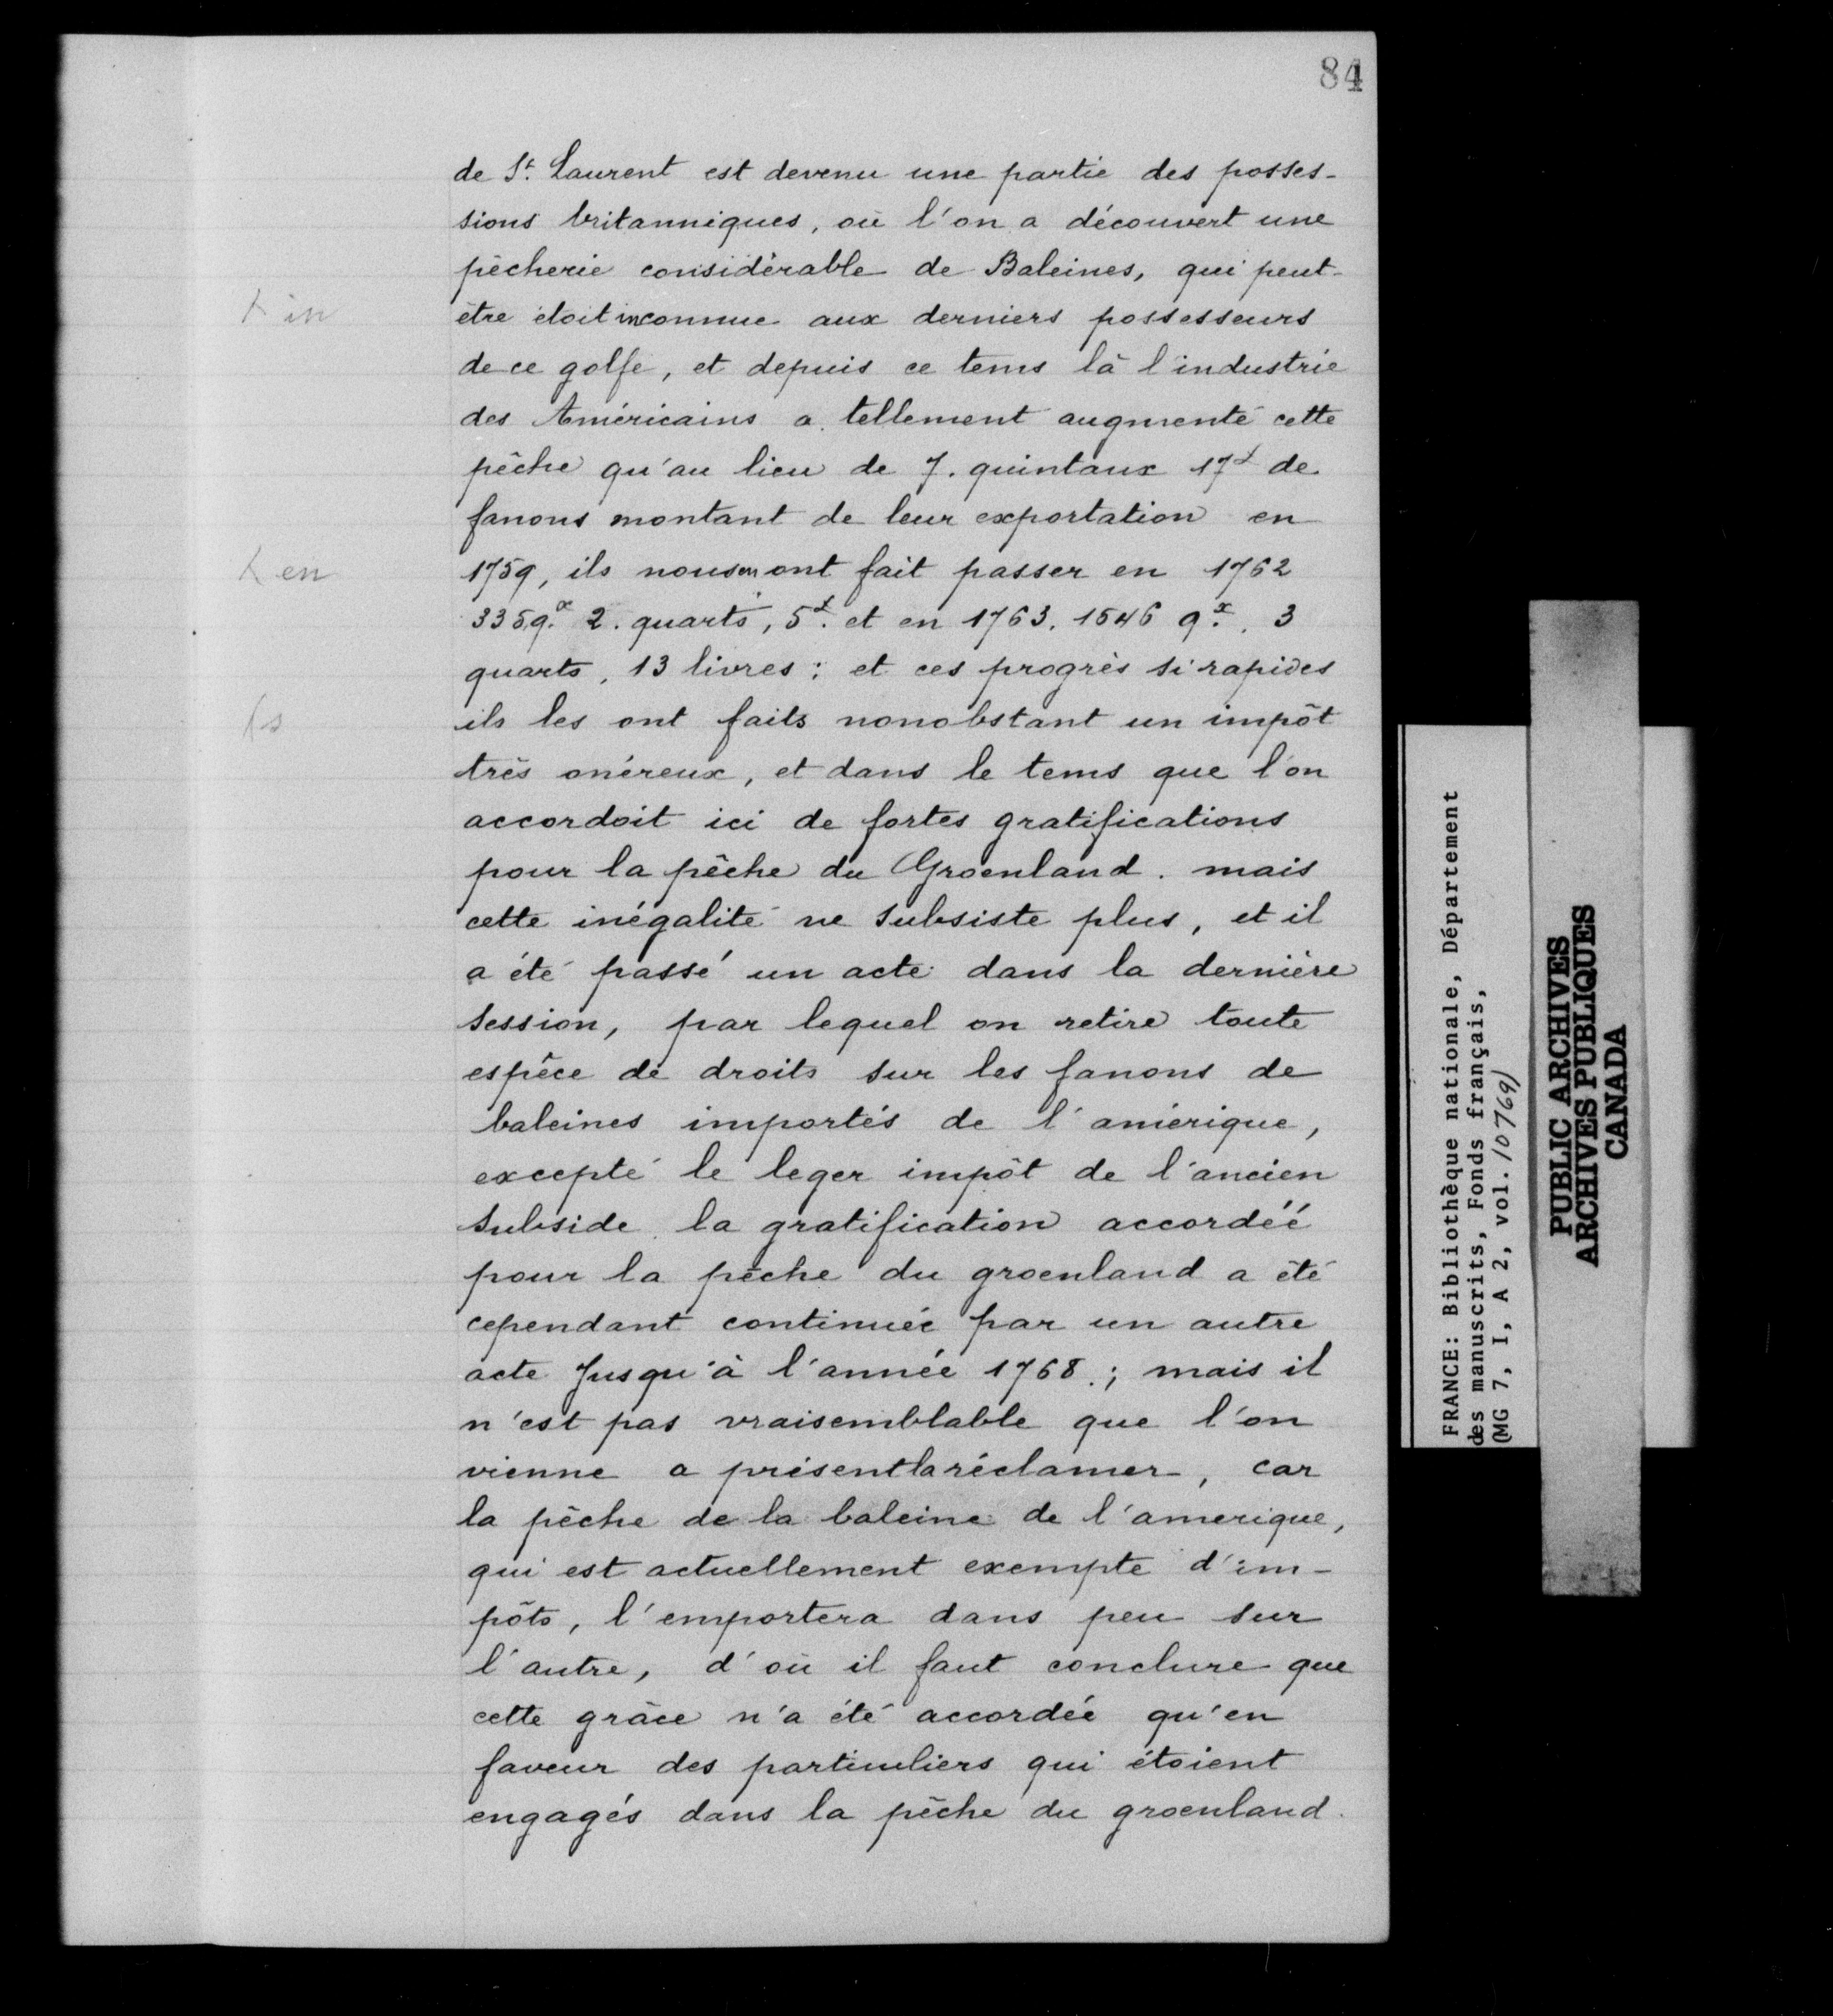 84
de St. Laurent est devenu une partie des posses-
sions britanniques, où l'on a découvert une
pêcherie considérable de Baleines, qui peut-
in
être étoit inconnue aux derniers possesseurs
de ce golfe, et depuis ce tems là l'industrie
des Américains a tellement augmenté cette
pêche qu'au lieu de 7. quintaux 17# de
fanons montant de leur exportation en
en
1759, ils nous en ont fait passer en 1762
335 q.x 2. quarts, 5#. et en 1763. 1546 q.x. 3
quarts, 13 livres; et ces progrès si rapides
s
ils les ont faits nonobstant un impôt
très onéreux, et dans le tems que l'on
accordoit ici de fortes gratifications
pour la pêche du Groenland. mais
cette inégalité ne subsiste plus, et il
a été passé un acte dans la dernière
session, par lequel on retire toute
espèce de droits sur les fanons de
baleines importés de l'amérique,
excepté le leger impôt de l'ancien
subside. la gratification accordéé
pour la pêche du groenland a été
cependant continuée par un autre
acte Jusqu'à l'année 1768.; mais il
n'est pas vraisemblable que l'on
vienne a présent la réclamer, car
la pêche de la baleine de l'amerique,
qui est actuellement exempte d'im-
pôts, l'emportera dans peu sur
l'autre, d'où il faut conclure que
cette grâce n'a été accordée qu'en
faveur des particuliers qui étoient
engagés dans la pêche du groenland.
FRANCE: Bibliothèque nationale, Département
des manuscrits, Fonds français,
(MG 7, I, A 2, vol. 10769)
PUBLIC ARCHIVES
ARCHIVES PUBLIQUES
CANADA